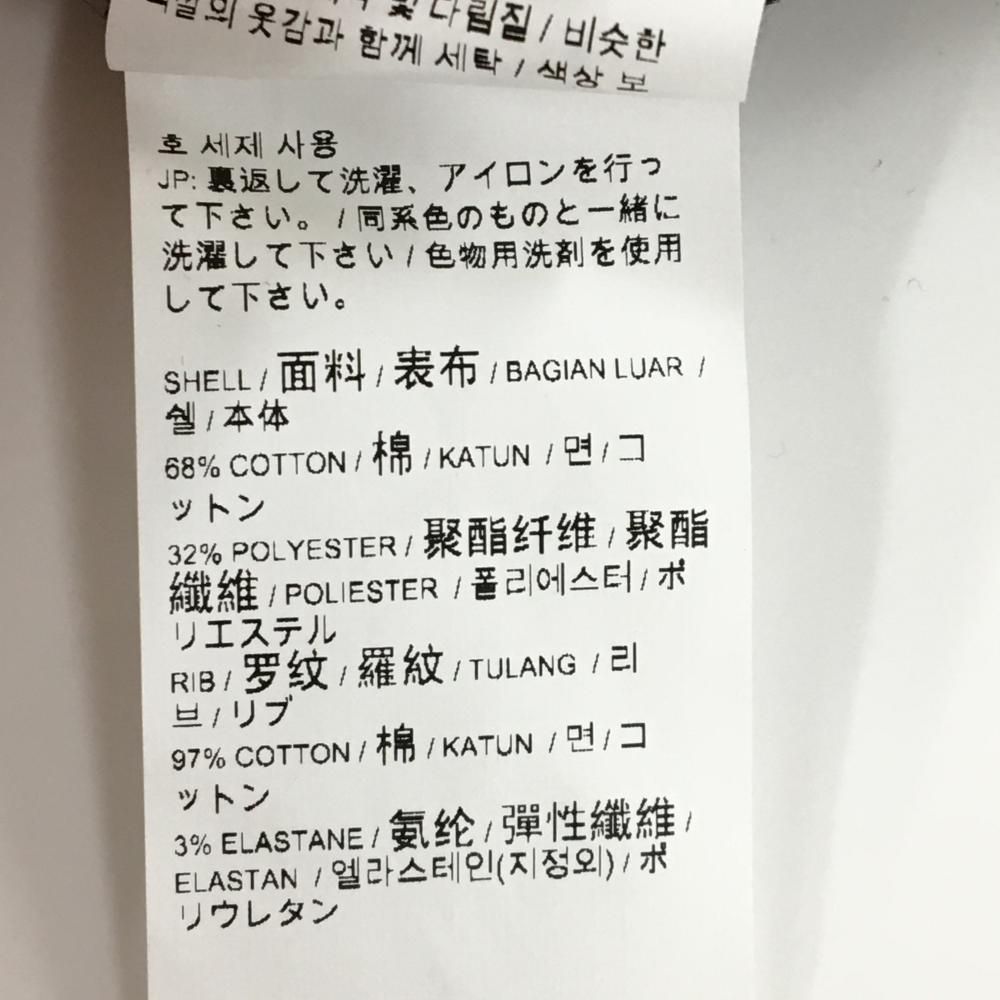 및 다림질 / 비슷한
의 옷감과 함께 세탁 / 색상 보
호 세제 사용
JP: 裏返して洗濯、アイロンを行っ
て下さい。 / 同系色のものと一緒に
洗濯して下さい / 色物用洗剤を使用
して下さい。
SHELL / 面料 / 表布 / BAGIAN LUAR /
쉘 / 本体
68% COTTON / 棉 / KATUN / 면 / コ
ットン
32% POLYESTER / 聚酯纤维 / 聚酯
纖維 / POLIESTER / 폴리에스터 / ポ
リエステル
RIB / 罗纹 / 羅紋 / TULANG / 리
브 / リブ
97% COTTON / 棉 / KATUN / 면 / コ
ットン
3% ELASTANE / 氨纶 / 彈性纖維 /
ELASTAN / 엘라스테인(지정외) / ポ
リウレタン